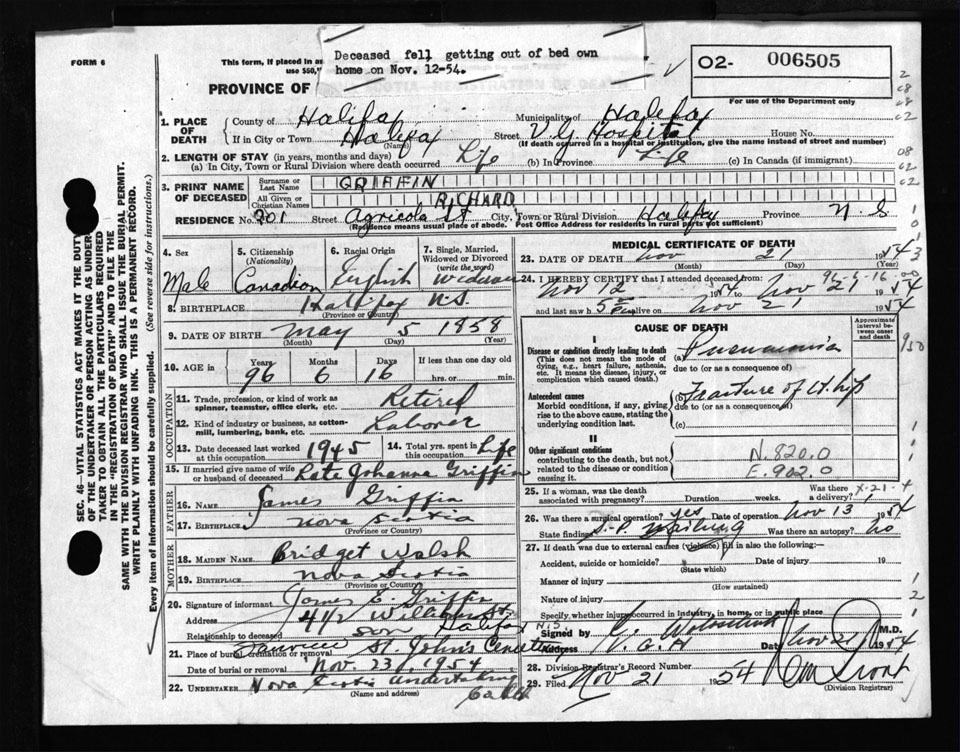 FORM 6
This form, if placed in an
use $50,
Deceased fell getting out of bed own
home on Nov. 12-54.
O2- 006505
For use of the Department only
PROVINCE OF
1. PLACE OF DEATH
County of Halifax Municipality of Halifax
If in City or Town Halifax Street V.G. Hospital House No.
(Name) (If death occurred in a hospital or institution, give the name instead of street and number)
2. LENGTH OF STAY (in years, months and days)
(a) In City, Town or Rural Division where death occurred Life (b) In Province Life (c) In Canada (if immigrant)
3. PRINT NAME OF DECEASED
Surname or Last Name GRIFFIN
All Given or Christian Names RICHARD
RESIDENCE No. 201 Street Agricola St City, Town or Rural Division Halifax Province N S
(Residence means usual place of abode. Post Office Address for residents in rural parts not sufficient)
4. Sex Male
5. Citizenship (Nationality) Canadian
6. Racial Origin English
7. Single, Married, Widowed or Divorced (write the word) Widower
8. BIRTHPLACE Halifax N.S.
(Province or Country)
9. DATE OF BIRTH May 5 1858
(Month) (Day) (Year)
10. AGE in Years 96 Months 6 Days 16 If less than one day old hrs. or min.
OCCUPATION
11. Trade, profession, or kind of work as spinner, teamster, office clerk, etc. Retired
12. Kind of industry or business, as cotton-mill, lumbering, bank, etc. Laborer
13. Date deceased last worked at this occupation 1945
14. Total yrs. spent in this occupation Life
15. If married give name of wife or husband of deceased Late Johanna Griffin
FATHER
16. NAME James Griffin
17. BIRTHPLACE Nova Scotia
(Province or Country)
MOTHER
18. MAIDEN NAME Bridget Walsh
19. BIRTHPLACE Nova Scotia
(Province or Country)
20. Signature of informant James E. Griffin
Address Halifax N.S.
Relationship to deceased son
21. Place of burial, cremation or removal Fairview St. John's
Date of burial or removal Nov. 23, 1954
22. UNDERTAKER Nova Scotia Undertaking
(Name and address)
MEDICAL CERTIFICATE OF DEATH
23. DATE OF DEATH Nov 21 1954
(Month) (Day) (Year)
24. I HEREBY CERTIFY that I attended deceased from:
Nov 12 1954 to Nov 21 1954
and last saw h alive on Nov 21 1954
CAUSE OF DEATH
Approximate interval between onset and death
I
Disease or condition directly leading to death (a) Pneumonia
(This does not mean the mode of dying, e.g., heart failure, asthenia, etc. It means the disease, injury, or complication which caused death.)
due to (or as a consequence of)
Antecedent causes (b) Fracture of Lt. hip
Morbid conditions, if any, giving rise to the above cause, stating the underlying condition last.
due to (or as a consequence of)
(c)
II
Other significant conditions
contributing to the death, but not related to the disease or condition causing it.
N. 820.0
E. 902.0
25. If a woman, was the death associated with pregnancy? Duration weeks. Was there a delivery?
26. Was there a surgical operation? yes Date of operation Nov 13 1954
State findings Was there an autopsy? No
27. If death was due to external causes (violence) fill in also the following:—
Accident, suicide or homicide? Date of injury 19
(State which)
Manner of injury
(How sustained)
Nature of injury
Specify whether injury occurred in industry, in home, or in public place
Signed by M.D.
Address V.G.H Date Nov 21 1954
28. Division Registrar's Record Number
29. Filed Nov 21 1954
(Division Registrar)
SEC. 46—VITAL STATISTICS ACT MAKES IT THE DUTY
OF THE UNDERTAKER OR PERSON ACTING AS UNDER-
TAKER TO OBTAIN ALL THE PARTICULARS REQUIRED
IN THE "REGISTRATION OF DEATH" AND TO FILE THE
SAME WITH THE DIVISION REGISTRAR WHO SHALL ISSUE THE BURIAL PERMIT.
WRITE PLAINLY WITH UNFADING INK. THIS IS A PERMANENT RECORD.
Every item of information should be carefully supplied. (See reverse side for instructions.)